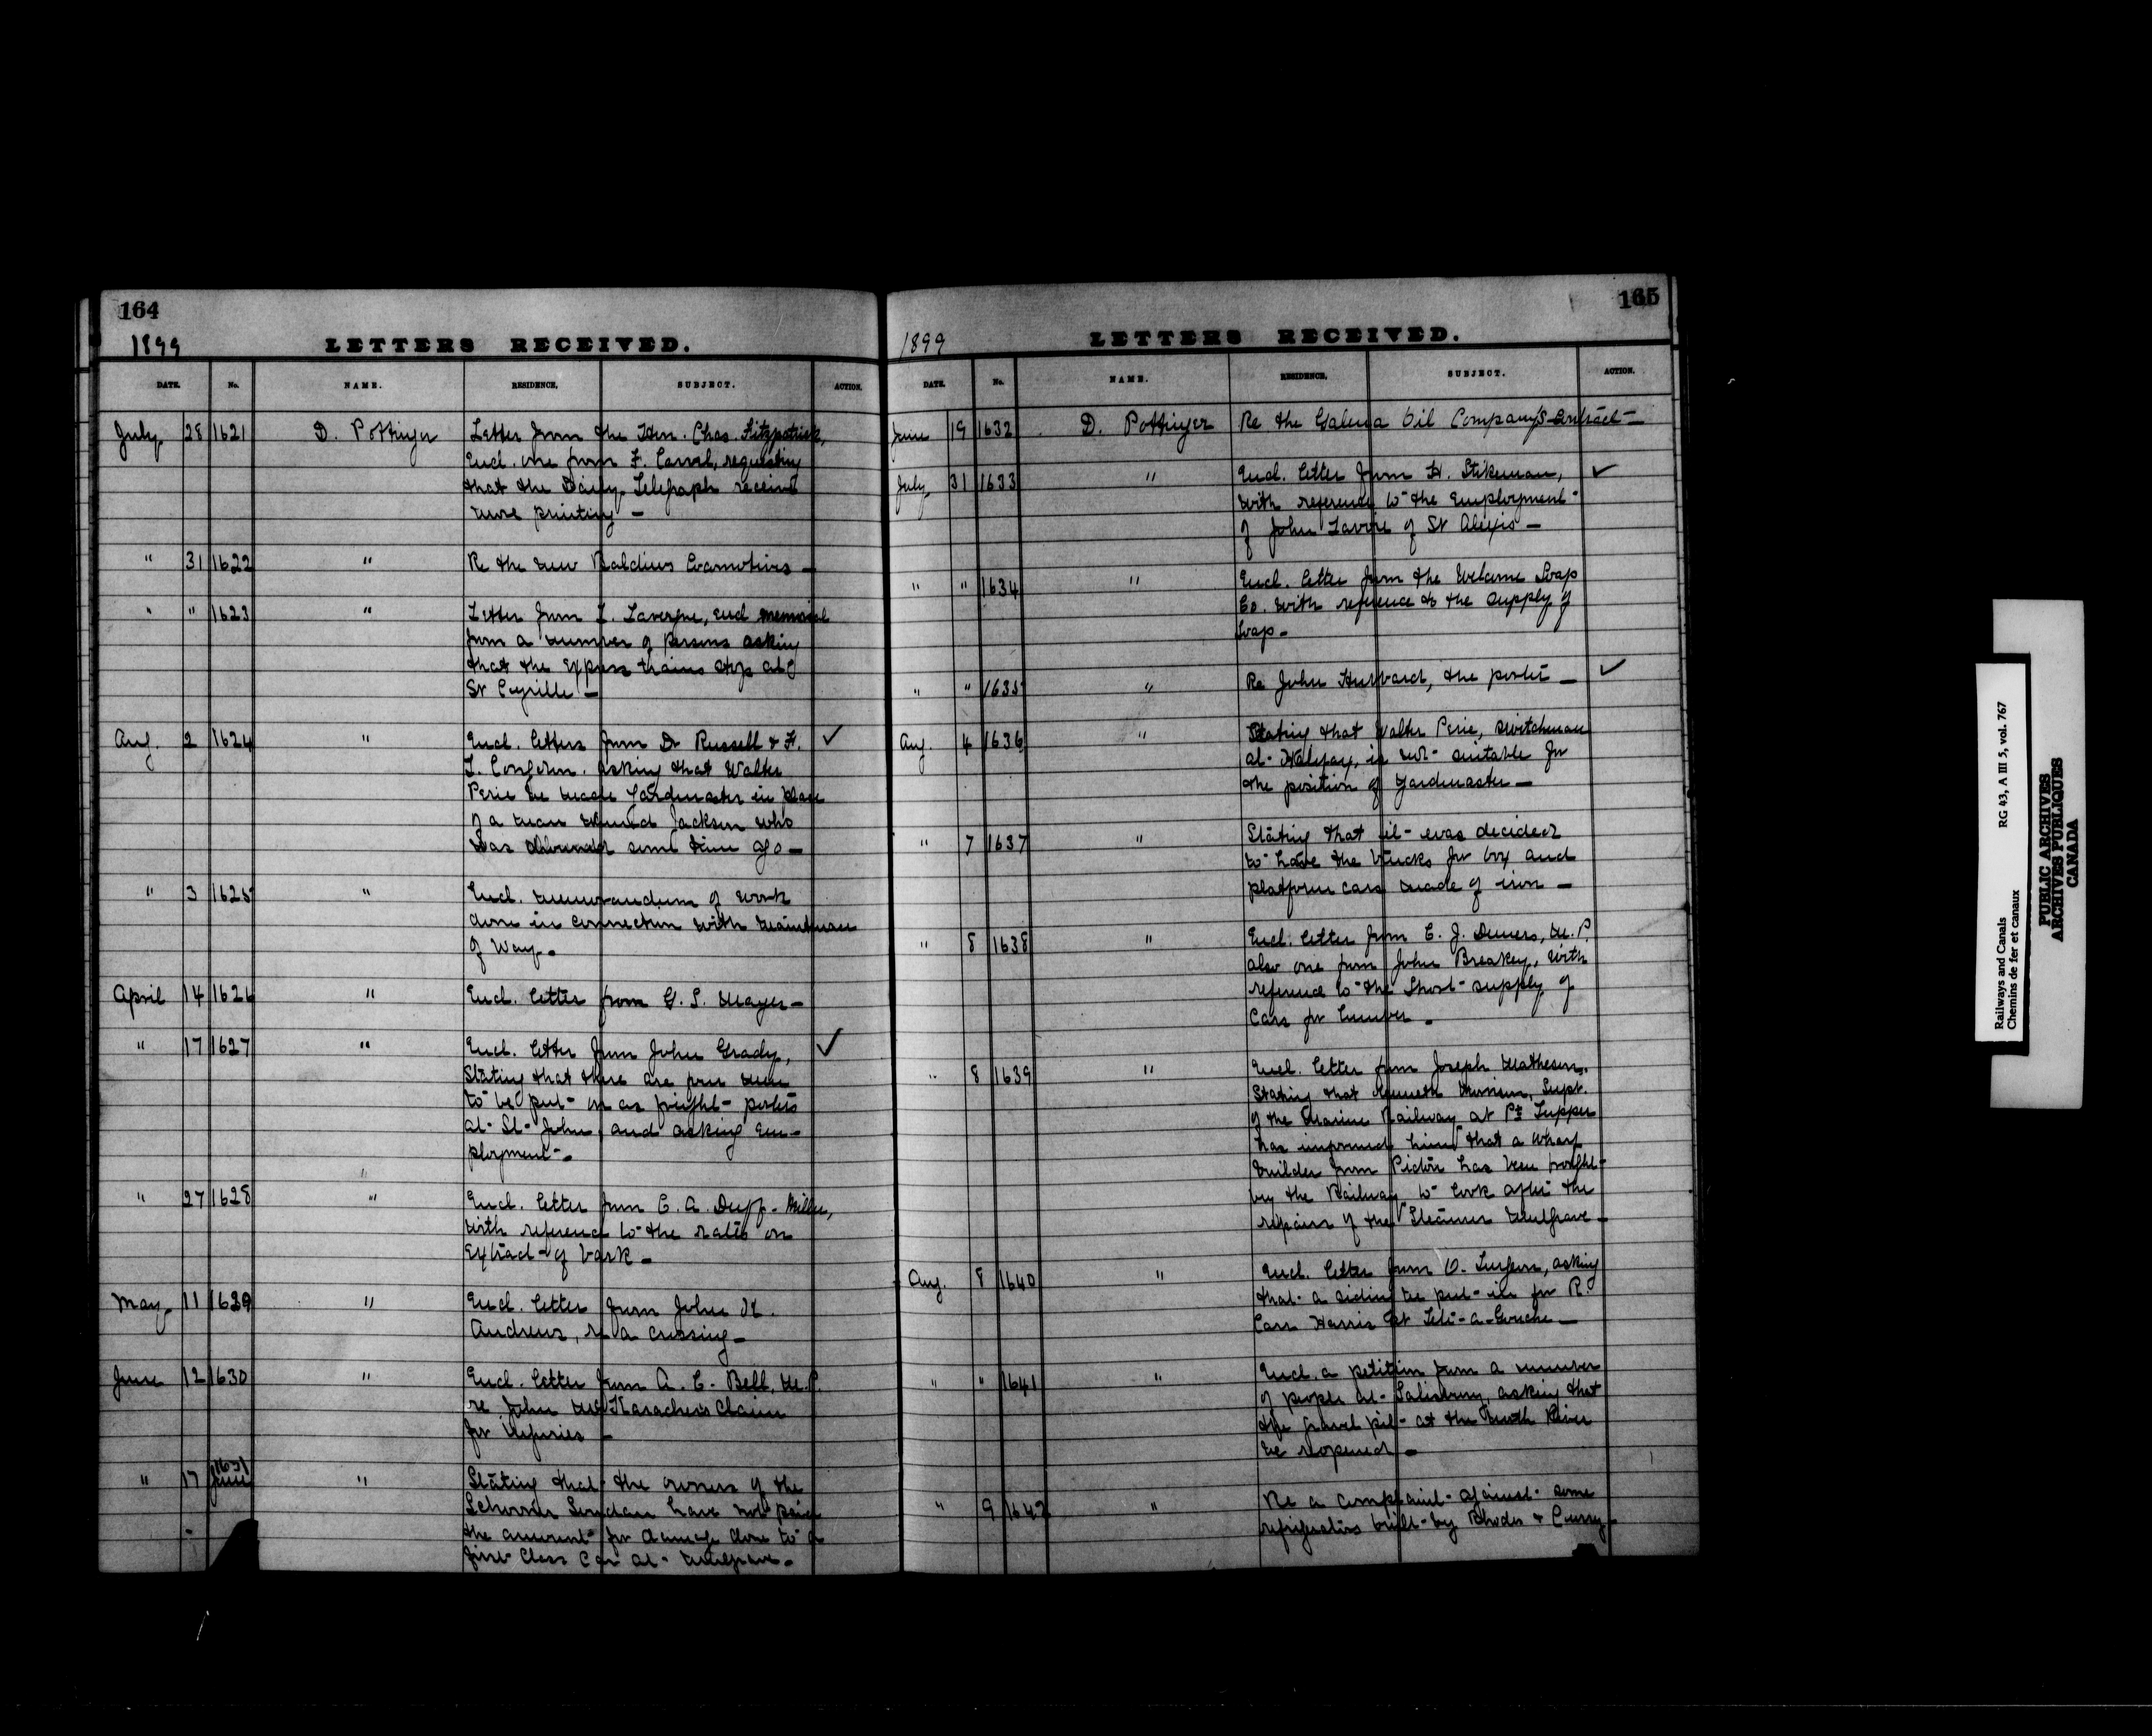 164
1899
LETTERS RECEIVED.
DATE. No. NAME. RESIDENCE. SUBJECT. ACTION.
July 28 1621 D. Pottinger Letter from the Hon. Chas. Fitzpatrick,
Encl. one from F. Carrel, requesting
that the Daily Telegraph receive
more printing —
" 31 1622 " Re the new Baldwin Locomotives —
" " 1623 " Letter from L. Lavergne, encl memorial
from a number of Persons asking
that the Express trains stop at
St Cyrille —
Aug. 2 1624 " Encl. letters from Dr Russell & H. ✓
asking that Walter
Pirie be made Yardmaster in place
of a man named Jackson who
was some time ago —
" 3 1625 " Encl. memorandum of work
done in connection with
of Way.
April 14 1626 " Encl. letter from G. S. Mayes —
" 17 1627 " Encl. letter from John Grady, ✓
Stating that there are four men
to be put on as freight porters
at St John, and asking em-
ployment.
" 27 1628 " Encl. letter from C. A. Duff-Miller,
with reference to the rates on
Extract of bark —
May 11 1629 " Encl. letter from John H.
Andrews, re a crossing —
June 12 1630 " Encl. letter from A. C. Bell, M.P.
re John Claim
for Injuries —
" 17 1631 " Stating that the owners of the
Schooner have not paid
the amount for damage done to a
first Class Car at Mulgrave —
165
1899
LETTERS RECEIVED.
DATE. No. NAME. RESIDENCE. SUBJECT. ACTION.
June 19 1632 D. Pottinger Re the Galena Oil Company's Contract —
July 31 1633 " Encl. letter from H. Stikeman, ✓
with reference to the Employment
of John Lavoie of St Alexis —
" " 1634 " Encl. letter from the Welcome Soap
Co. with reference to the supply of
Soap —
" " 1635 " Re John Hubbard, the porter — ✓
Aug. 4 1636 " Stating that Walter Pirie, switchman
at Halifax, is not suitable for
the position of Yardmaster —
" 7 1637 " Stating that it was decided
to have the trucks for box and
platform cars made of iron —
" 8 1638 " Encl. letter from L. J. Demers, M.P.
also one from John Breakey, with
reference to the Short supply of
Cars for lumber.
" 8 1639 " Encl. letter from Joseph Matheson,
Stating that Kenneth Morrison, Supt.
of the Marine Railway at Pt Tupper
has informed him that a wharf
builder from Pictou has been brought
by the Railway to look after the
repairs of the Steamer Mulgrave —
Aug. 8 1640 " Encl. letter from O. Turgeon, asking
that a siding be put in for R.
Carr Harris at Tete-a-Gouche —
" " 1641 " Encl. a petition from a number
of people at Salisbury, asking that
the gravel pit at the North River
be reopened —
" 9 1642 " Re a complaint against some
refrigerators built by Rhodes & Curry —
Railways and Canals RG 43, A III 5, vol. 767
Chemins de fer et canaux
PUBLIC ARCHIVES
ARCHIVES PUBLIQUES
CANADA